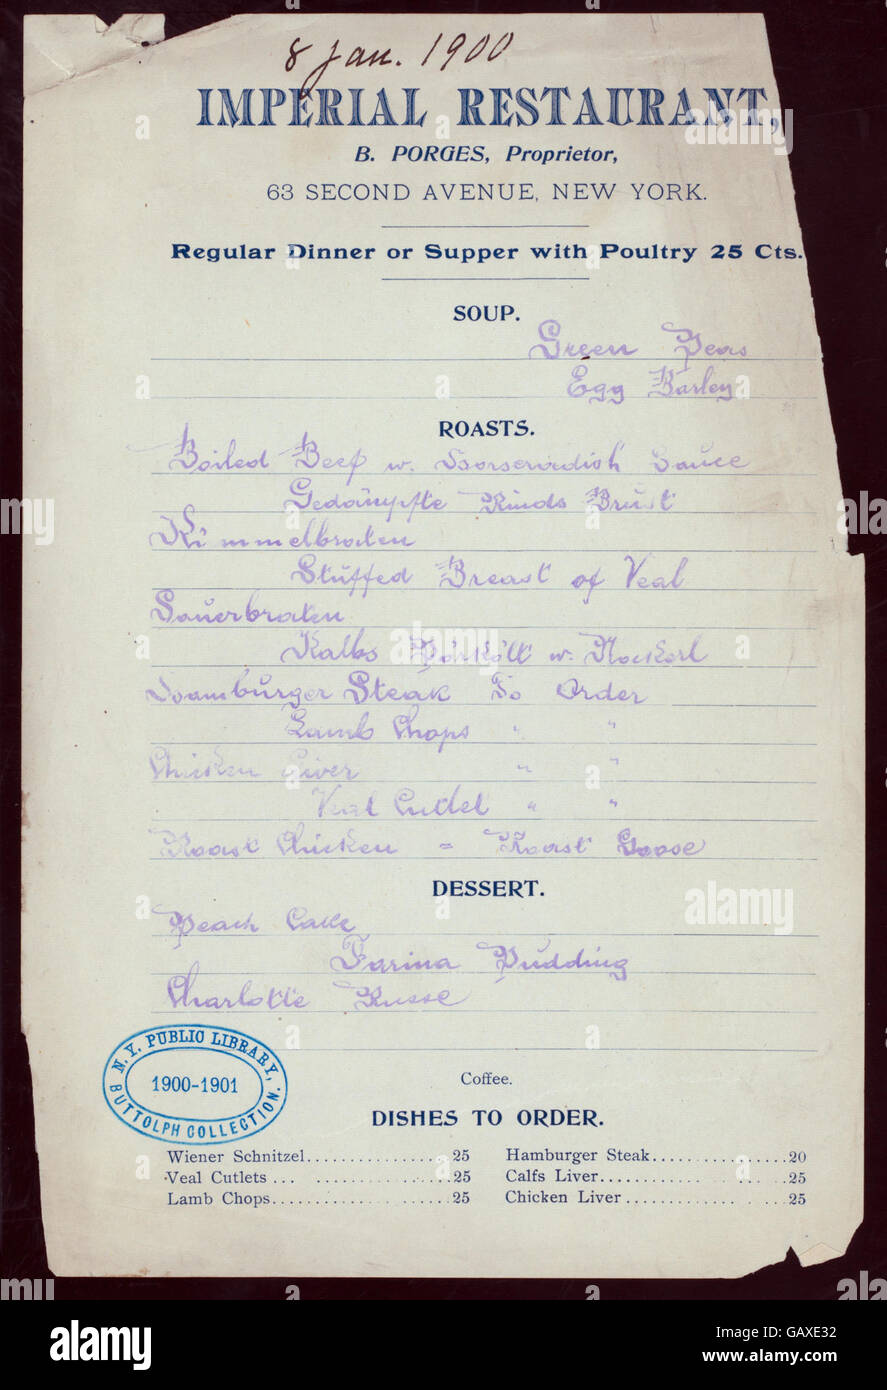 8 Jan. 1900
IMPERIAL RESTAURANT,
B. PORGES, Proprietor,
63 SECOND AVENUE, NEW YORK.
Regular Dinner or Supper with Poultry 25 Cts.
SOUP.
Green Peas
Egg Barley
ROASTS.
Boiled Beef w. Horseradish Sauce
Gedämpfte Rinds Brust
Kümmelbraten
Stuffed Breast of Veal
Sauerbraten
Kalbs Pörkölt w. Nockerl
Hamburger Steak To Order
Lamb Chops " "
Chicken Liver " "
Veal Cutlet " "
Roast Chicken = Roast Goose
DESSERT.
Peach Cake
Farina Pudding
Charlotte Russe
N.Y. PUBLIC LIBRARY,
1900-1901
BUTTOLPH COLLECTION.
Coffee.
DISHES TO ORDER.
Wiener Schnitzel................25 Hamburger Steak...............20
Veal Cutlets ... ................25 Calfs Liver.....................25
Lamb Chops.....................25 Chicken Liver..................25
alamy
alamy stock photo
GAXE32
www.alamy.com